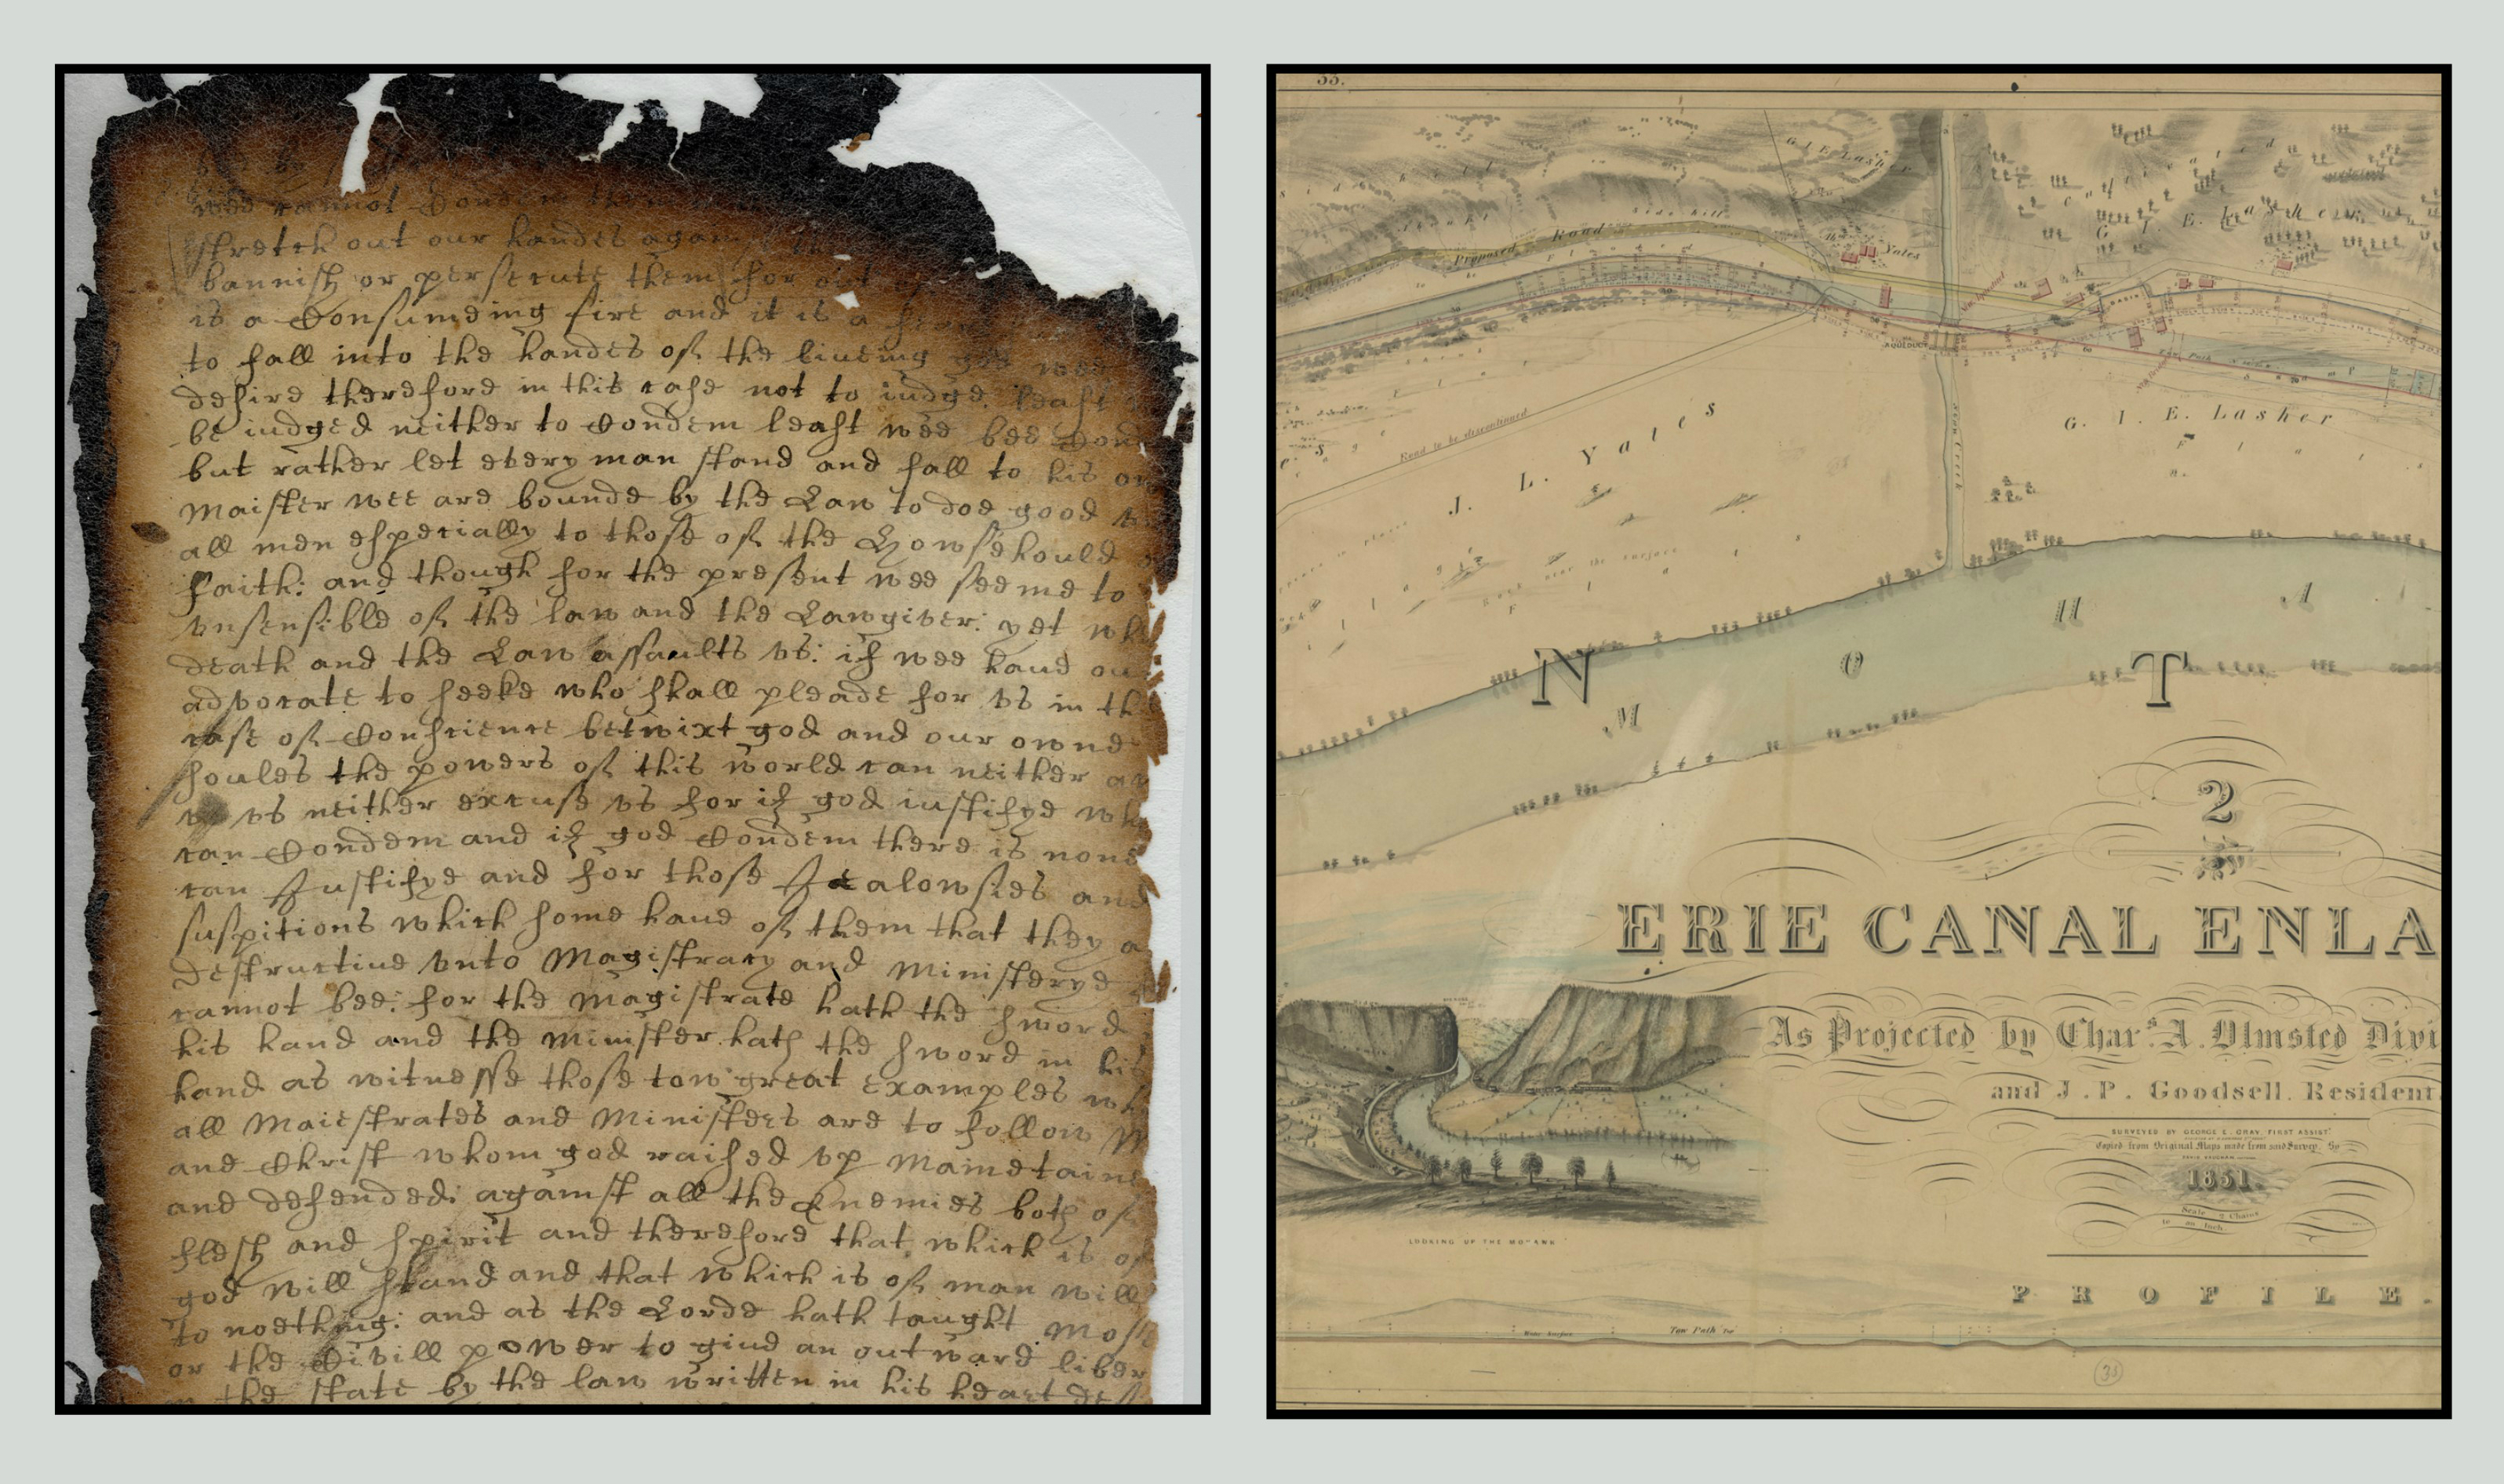 wee cannot Condem them
stretch out our handes against th
bannish or persecute them for out of
is a Consumeing fire and it is a fear
to fall into the handes of the liueing god wee
desire therefore in this case not to iudge least
be iudged neither to Condem least wee bee Cond
but rather let every man stand and fall to his ow
Maister wee are bounde by the Law to doe good v
all men especially to those of the Howsehould
faith: and though for the present wee seeme to
vnsensible of the law and the Lawgiver: yet wh
death and the Law assaults vs: if wee haue ou
advocate to seeke who shall pleade for vs in th
case of Conscience betwixt god and our owne
soules the powers of this world can neither
vs neither excuse vs for if god iustifye wh
can Condem and if god Condem there is none
can Justifye and for those Jealowsies and
suspitions which some haue of them that they a
destructiue vnto Magistracy and Ministerye
cannot bee: for the Magistrate hath the sword
his hand and the Minister hath the sword in his
hand as witnesse those tow great examples wh
all Maiestrates and Ministers are to follow M
and Christ whom god raised vp Mainetaine
and defended: against all the Enemies both of
flesh and spirit and therefore that which is of
god will stand and that which is of man will
to noething: and as the Lorde hath taught Mos
or the Civill power to giue an outward liber
in the state by the law written in his heart des
33.
G I E Lasher
Side Hill
Proposed Road
Yates
G. I. E. Lasher
AQUEDUCT
BASIN
Road to be discontinued
J. L. Yates
G. I. E. Lasher
Rock near the surface
N O T
M H A
2
ERIE CANAL ENLA
As Projected by Chas. A. Olmsted Divi
and J. P. Goodsell. Resident
SURVEYED BY GEORGE E. GRAY, FIRST ASSIST.
Copied from Original Maps made from and Survey. By
1851.
Scale 2 Chains
to an Inch.
LOOKING UP THE MOHAWK
PROFILE.
Tow Path
35